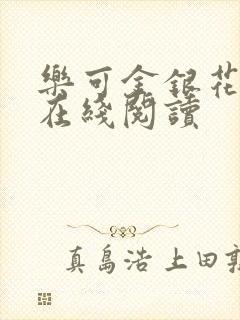 樂可金銀花
在綫閱讀
真島浩 上田敦